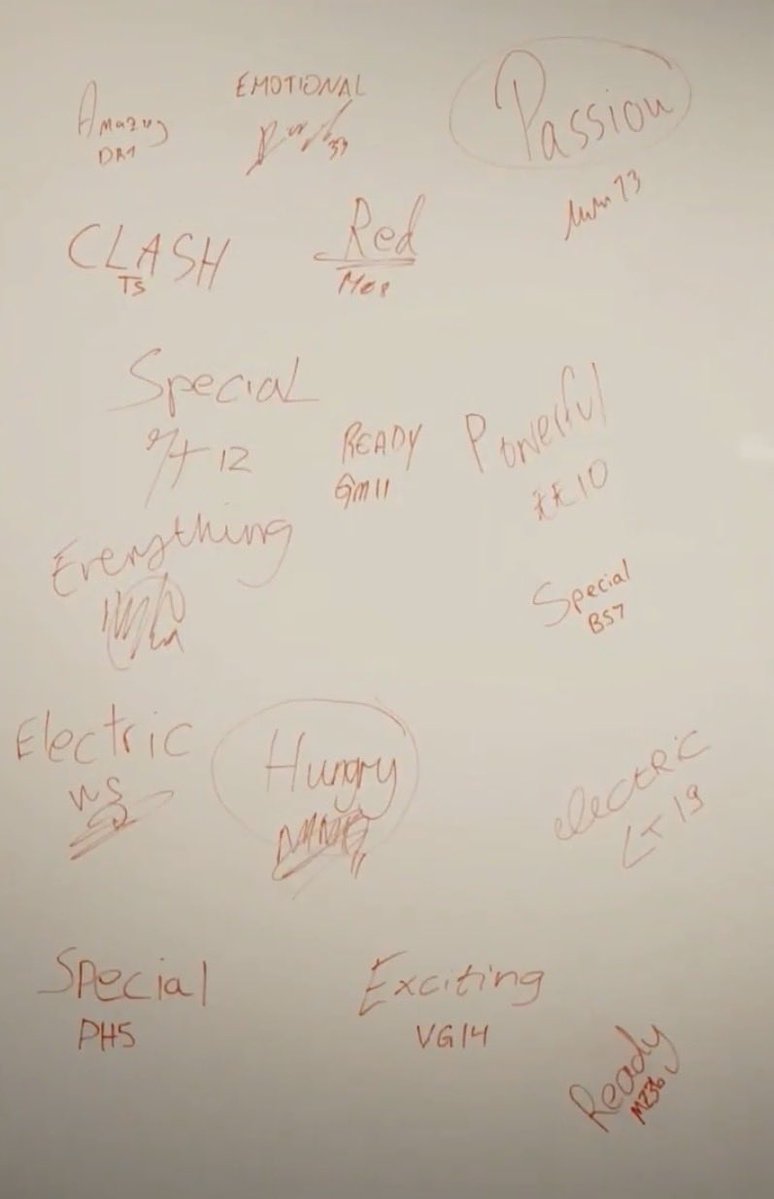 Amazing
DR1
EMOTIONAL
Passion
CLASH
TS
Red
Special
12
READY
GM11
Powerful
EE10
Everything
Special
BS7
Electric
WS
Hungry
electric
LT 19
Special
PH5
Exciting
VG14
Ready
MZ36